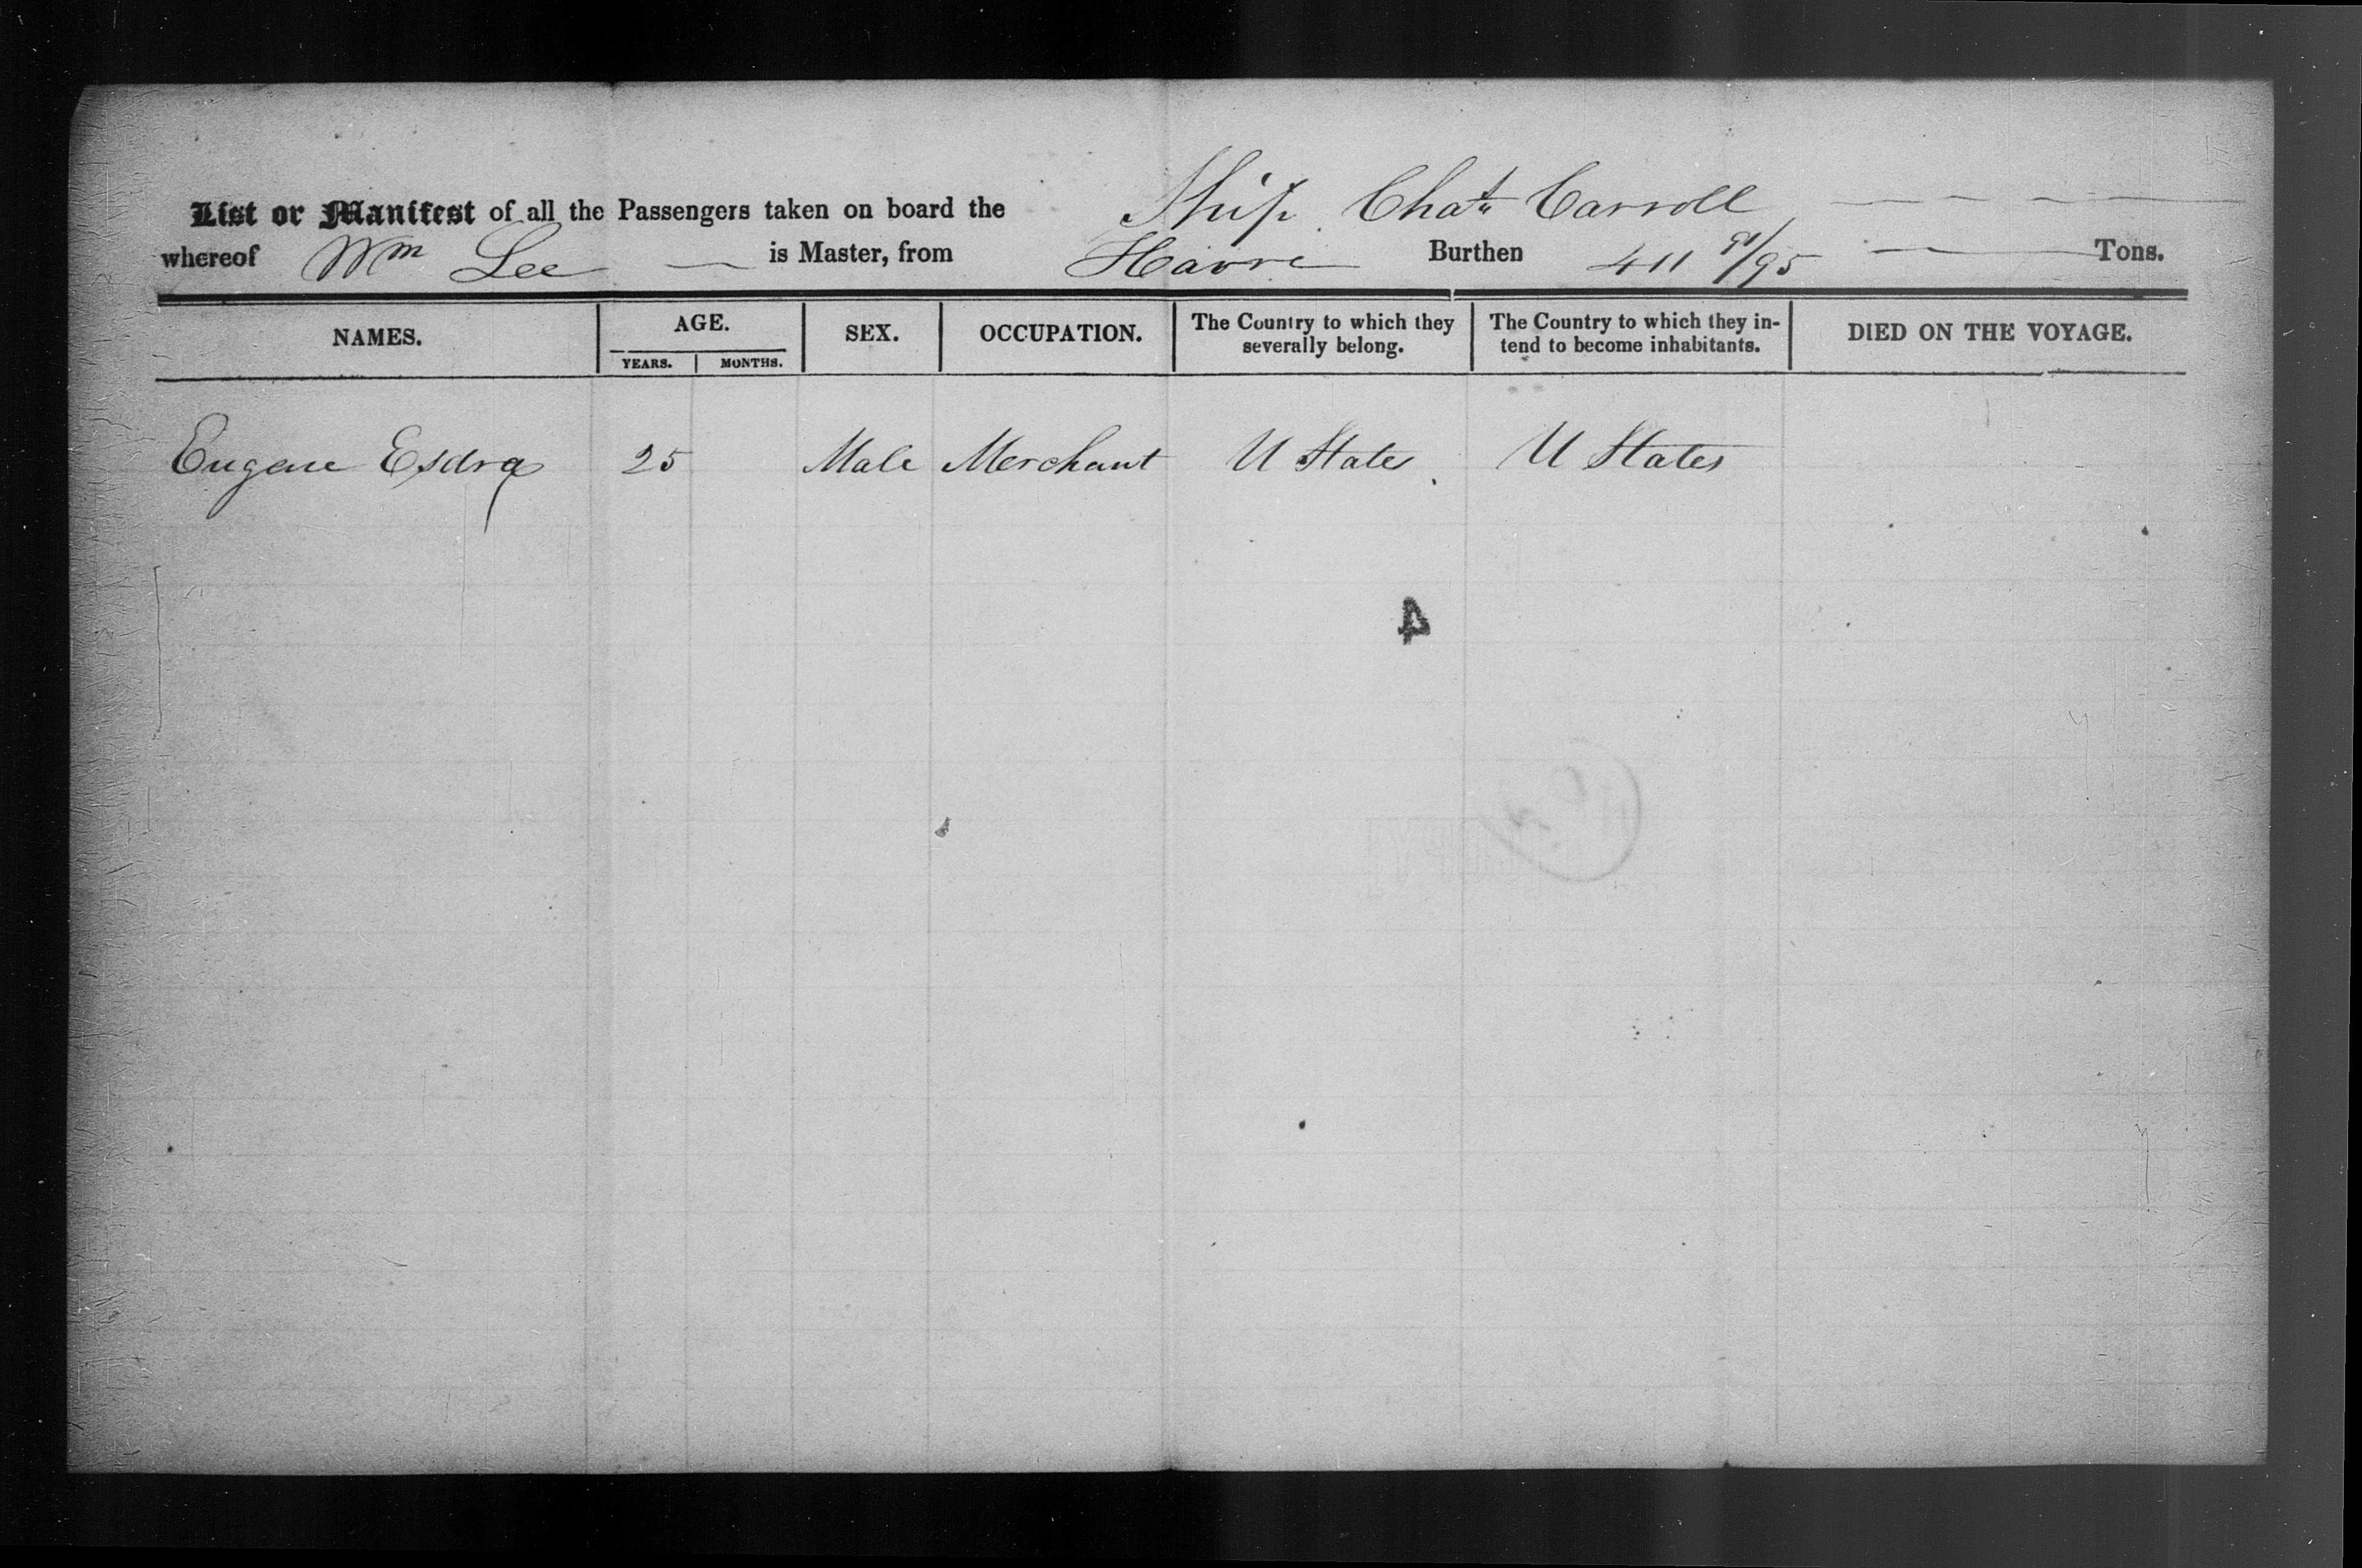 List or Manifest of all the Passengers taken on board the Ship Chas Carroll
whereof Wm Lee is Master, from Havre Burthen 411 91/95 Tons.
NAMES. AGE. SEX. OCCUPATION. The Country to which they severally belong. The Country to which they intend to become inhabitants. DIED ON THE VOYAGE.
YEARS. MONTHS.
Eugene Esdra 25 Male Merchant U States U States
4